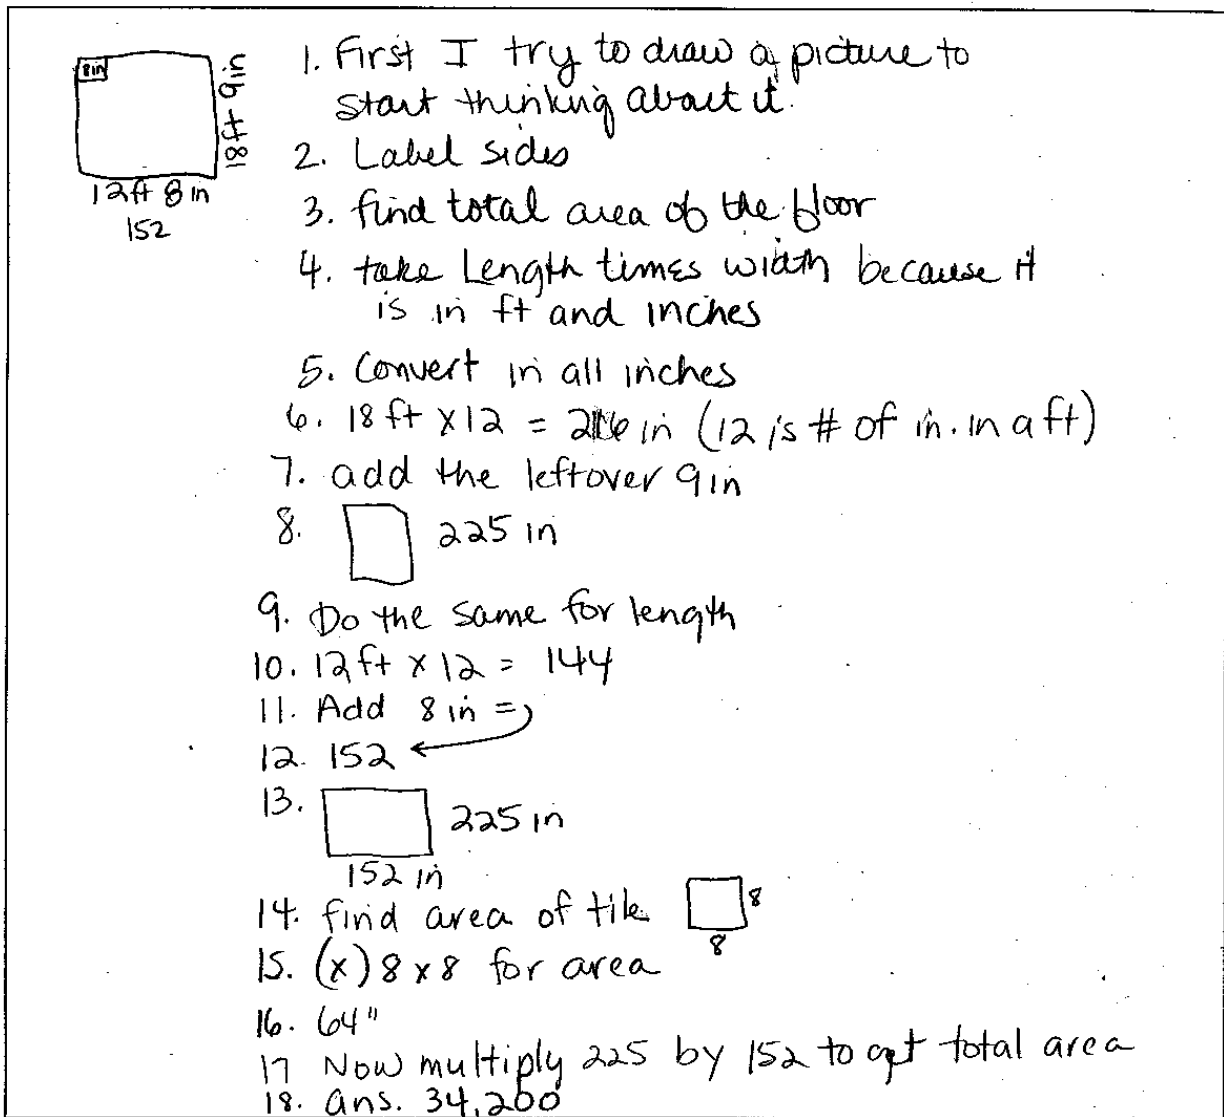 8in
18ft 9in
12ft 8 in
152
1. First I try to draw a picture to
start thinking about it.
2. Label sides
3. find total area of the floor
4. take Length times width because it
is in ft and inches
5. Convert in all inches
6. 18 ft x 12 = 216 in (12 is # of in. in a ft)
7. add the leftover 9in
8. 225 in
9. Do the same for length
10. 12 ft x 12 = 144
11. Add 8 in =
12. 152
13. 225 in
152 in
14. find area of tile 8
8
15. (x) 8 x 8 for area
16. 64"
17 Now multiply 225 by 152 to get total area
18. ans. 34,200